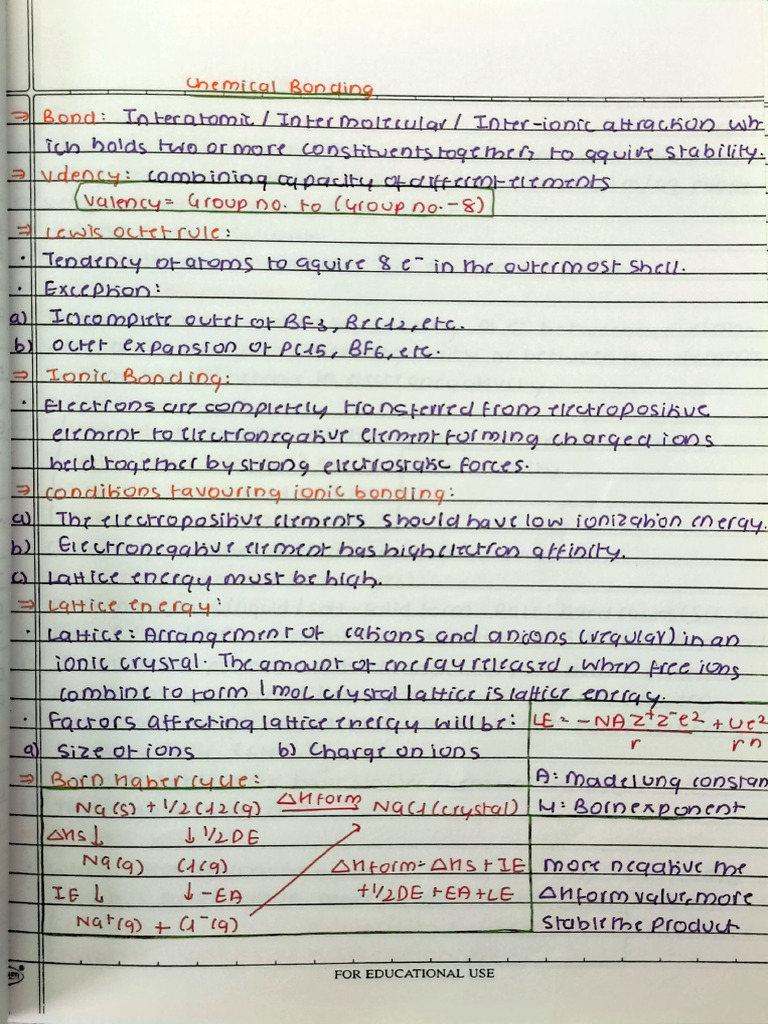 Chemical Bonding
⇒ Bond: Interatomic / Intermolecular / Inter-ionic attraction wh-
ich holds two or more constituents together, to aquire stability.
⇒ Valency: combining capacity of different elements
Valency = Group no. to (Group no. - 8)
⇒ Lewis octet rule:
· Tendency of atoms to aquire 8 e⁻ in the outermost shell.
· Exception:
a) Incomplete outet of BF3, BeCl2, etc.
b) octet expansion of PCl5, BF6, etc.
⇒ Ionic Bonding:
· Electrons are completely transferred from electropositive
element to electronegative element forming charged ions
held together by strong electrostatic forces.
⇒ conditions favouring ionic bonding:
a) The electropositive elements should have low ionization energy.
b) Electronegative element has high electron affinity.
c) Lattice energy must be high.
⇒ Lattice energy:
· Lattice: Arrangement of cations and anions (regular) in an
ionic crystal. The amount of energy released, when free ions
combine to form 1 mol crystal lattice is lattice energy.
· Factors affecting lattice energy will be:
a) Size of ions b) Charge on ions
LE = -NAZ⁺Z⁻e² + Ue²
r rn
A: Madelung constan
N: Born exponent
⇒ Born haber cycle:
Na(s) + 1/2 Cl2(g) ΔHform NaCl(crystal)
ΔHs↓ ↓1/2DE
Na(g) Cl(g)
IE ↓ ↓-EA
Na⁺(g) + Cl⁻(g)
ΔHform = ΔHs + IE
+ 1/2DE + EA + LE
more negative the
ΔHform value, more
stable the product
FOR EDUCATIONAL USE